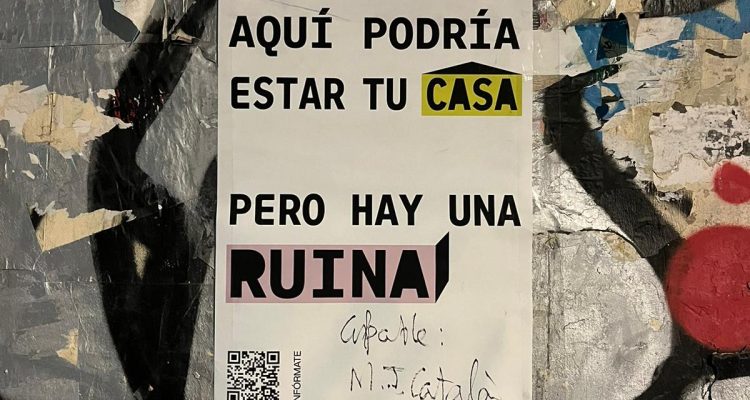 AQUÍ PODRÍA
ESTAR TU CASA
PERO HAY UNA
RUINA
INFÓRMATE
Culpable:
M.J. Catalá